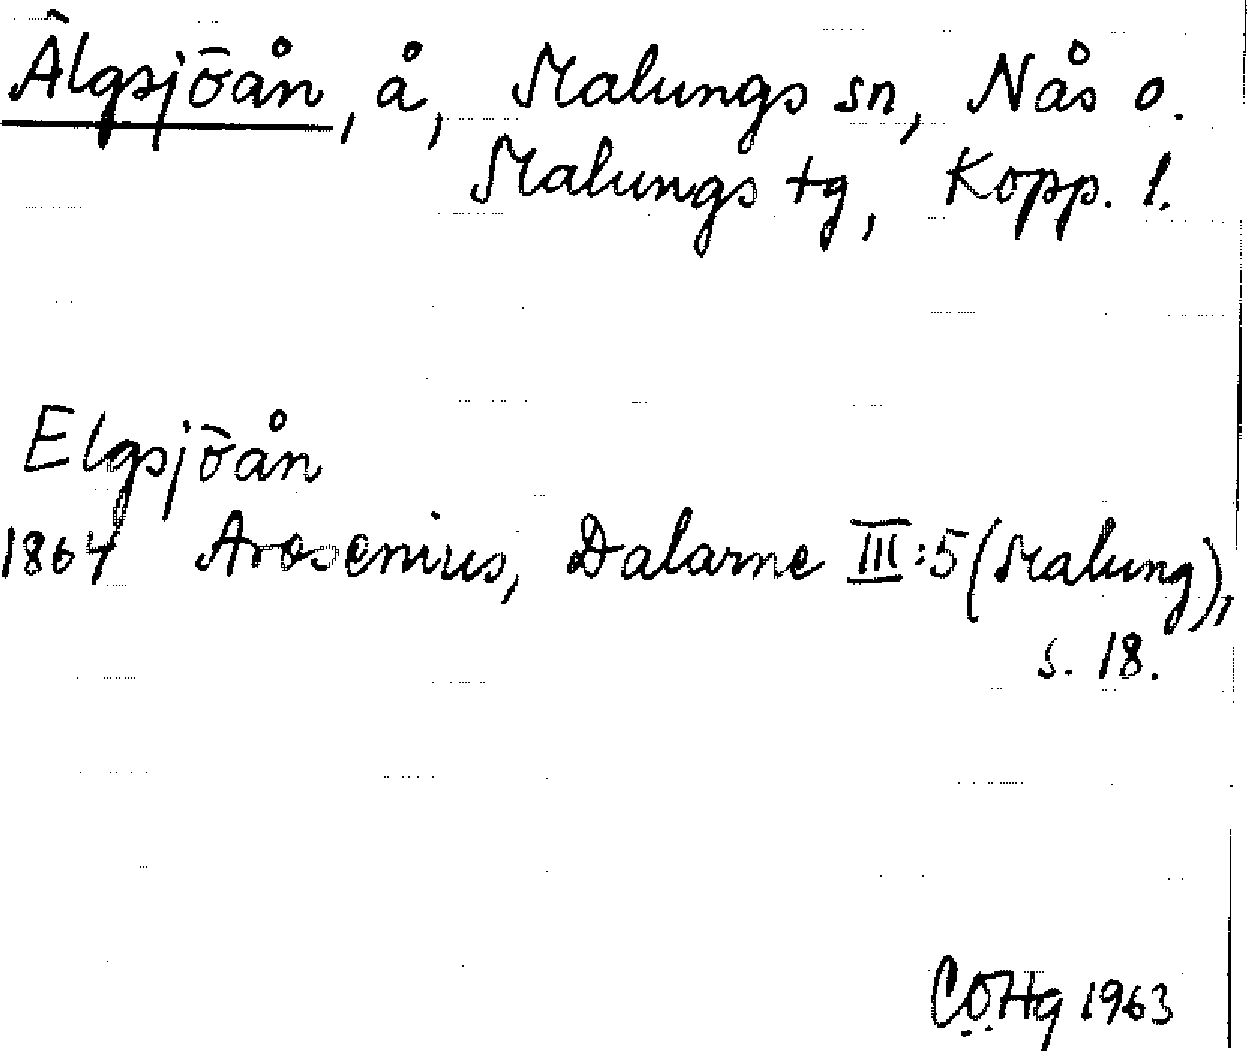 Älgsjöån, å, Malungs sn, Nås o.
Malungs tg, Kopp. l.
Elgsjöån
1864 Arosenius, Dalarne III:5 (Malung),
s. 18.
CÖHg 1963